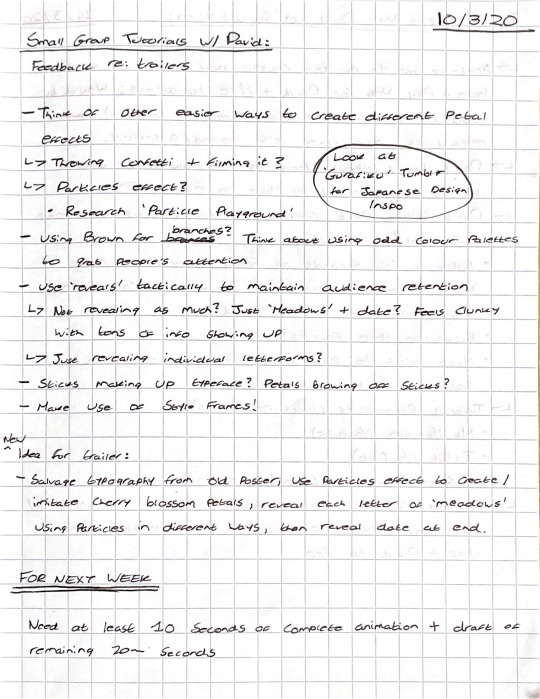 10/3/20
Small Group Tutorials w/ David:
Feedback re: trailers
- Think of other easier ways to create different Petal
effects
↳ Throwing Confetti + Filming it?
↳ Particles effect?
• Research 'Particle Playground'
Look at
'Gurafiku' Tumblr
for Japanese Design
Inspo
- Using Brown for branches? Think about using odd colour Palettes
to grab People's attention
- Use 'reveals' tactically to maintain audience retention
↳ Not revealing as much? Just 'Meadows' + date? Feels Clunky
with tons of info showing up
↳ Just revealing individual letterforms?
- Sticks making up typeface? Petals blowing off Sticks?
- Make use of Style Frames!
New
^ Idea for trailer:
- Salvage typography from old Poster, use Particles effect to create/
imitate cherry blossom Petals, reveal each letter of 'meadows'
using Particles in different ways, then reveal date at end.
FOR NEXT WEEK
Need at least 10 Seconds of complete animation + draft of
remaining 20~ Seconds